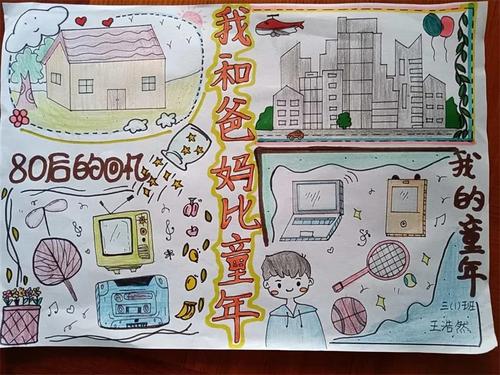 我和爸妈比童年
80后的回忆
我的童年
三(1)班
王浩然